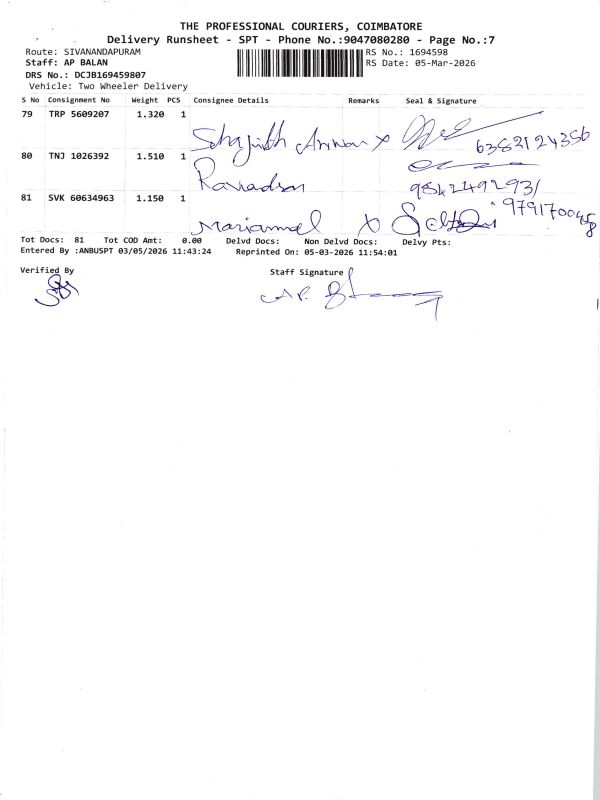 THE PROFESSIONAL COURIERS, COIMBATORE
Delivery Runsheet - SPT - Phone No.:9047080280 - Page No.:7
Route: SIVANANDAPURAM
RS No.: 1694598
Staff: AP BALAN
RS Date: 05-Mar-2026
DRS No.: DCJB169459807
Vehicle: Two Wheeler Delivery
S No Consignment No Weight PCS Consignee Details Remarks Seal & Signature
79 TRP 5609207 1.320 1
6382124356
80 TNJ 1026392 1.510 1
9842492931
81 SVK 60634963 1.150 1
Mariammal
Tot Docs: 81 Tot COD Amt: 0.00 Delvd Docs: Non Delvd Docs: Delvy Pts:
Entered By :ANBUSPT 03/05/2026 11:43:24 Reprinted On: 05-03-2026 11:54:01
Verified By Staff Signature